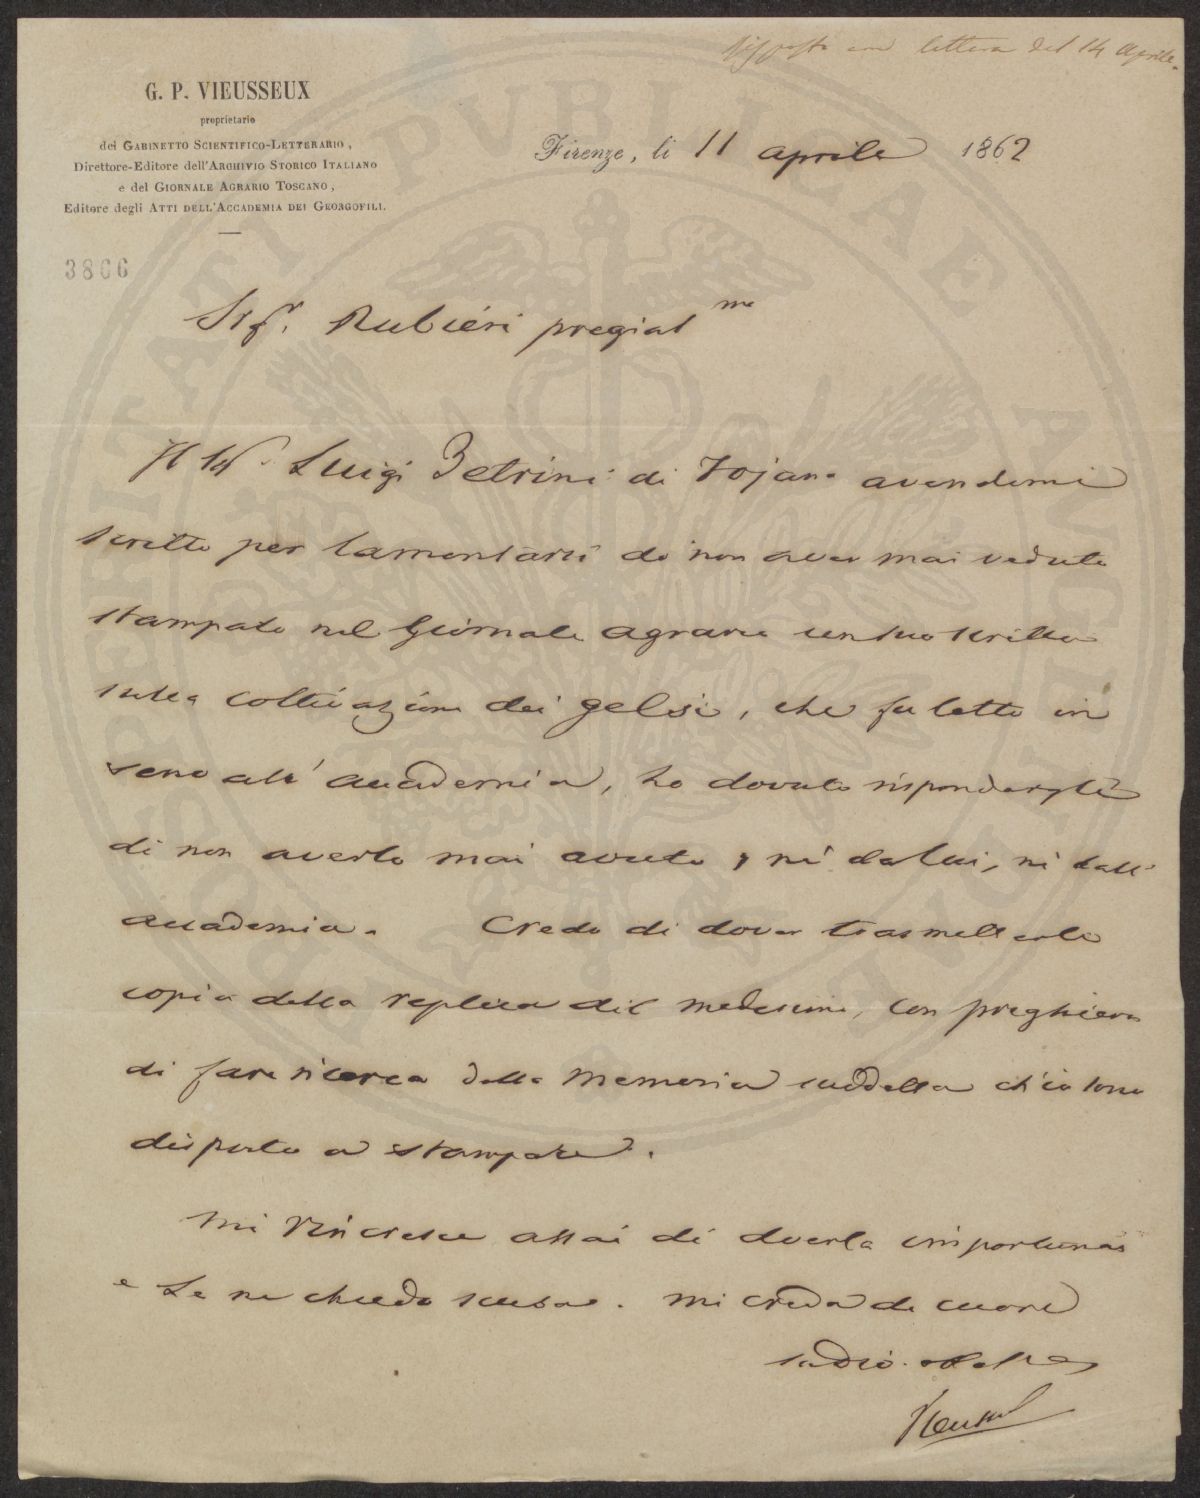 Risposto con lettera del 14 Aprile.
G. P. VIEUSSEUX
proprietario
del GABINETTO SCIENTIFICO-LETTERARIO,
Direttore-Editore dell'ARCHIVIO STORICO ITALIANO
e del GIORNALE AGRARIO TOSCANO,
Editore degli ATTI DELL'ACCADEMIA DEI GEORGOFILI.
Firenze, li 11 aprile 1862
3866
Sigr. Rubieri pregiatme
Il Sr. Luigi Petrini di Fojano avendomi
scritto per lamentarsi di non aver mai veduto
stampato nel Giornale agrario un suo scritto
sulla coltivazione dei gelsi, che fu letto in
seno all' accademia, ho dovuto rispondergli
di non averlo mai avuto, nè da lui, nè dall'
accademia. Credo di dover trasmetterle
copia della replica del medesimo, con preghiera
di fare ricerca della Memoria suddetta ch'io sono
disposto a stampare.
Mi rincresce assai di doverla importunar
e Le ne chiedo scusa. Mi creda di cuore
Vieusseux
PROSPERITATI PUBLICAE AUGENDAE